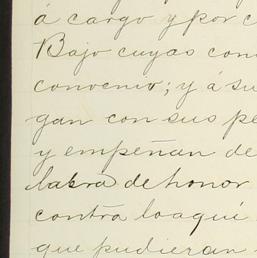 á cargo y por c
Bajo cuyas con
convenio; y á su
gan con sus pe
y empeñan de
labra de honor
contra lo aquí
que pudieran